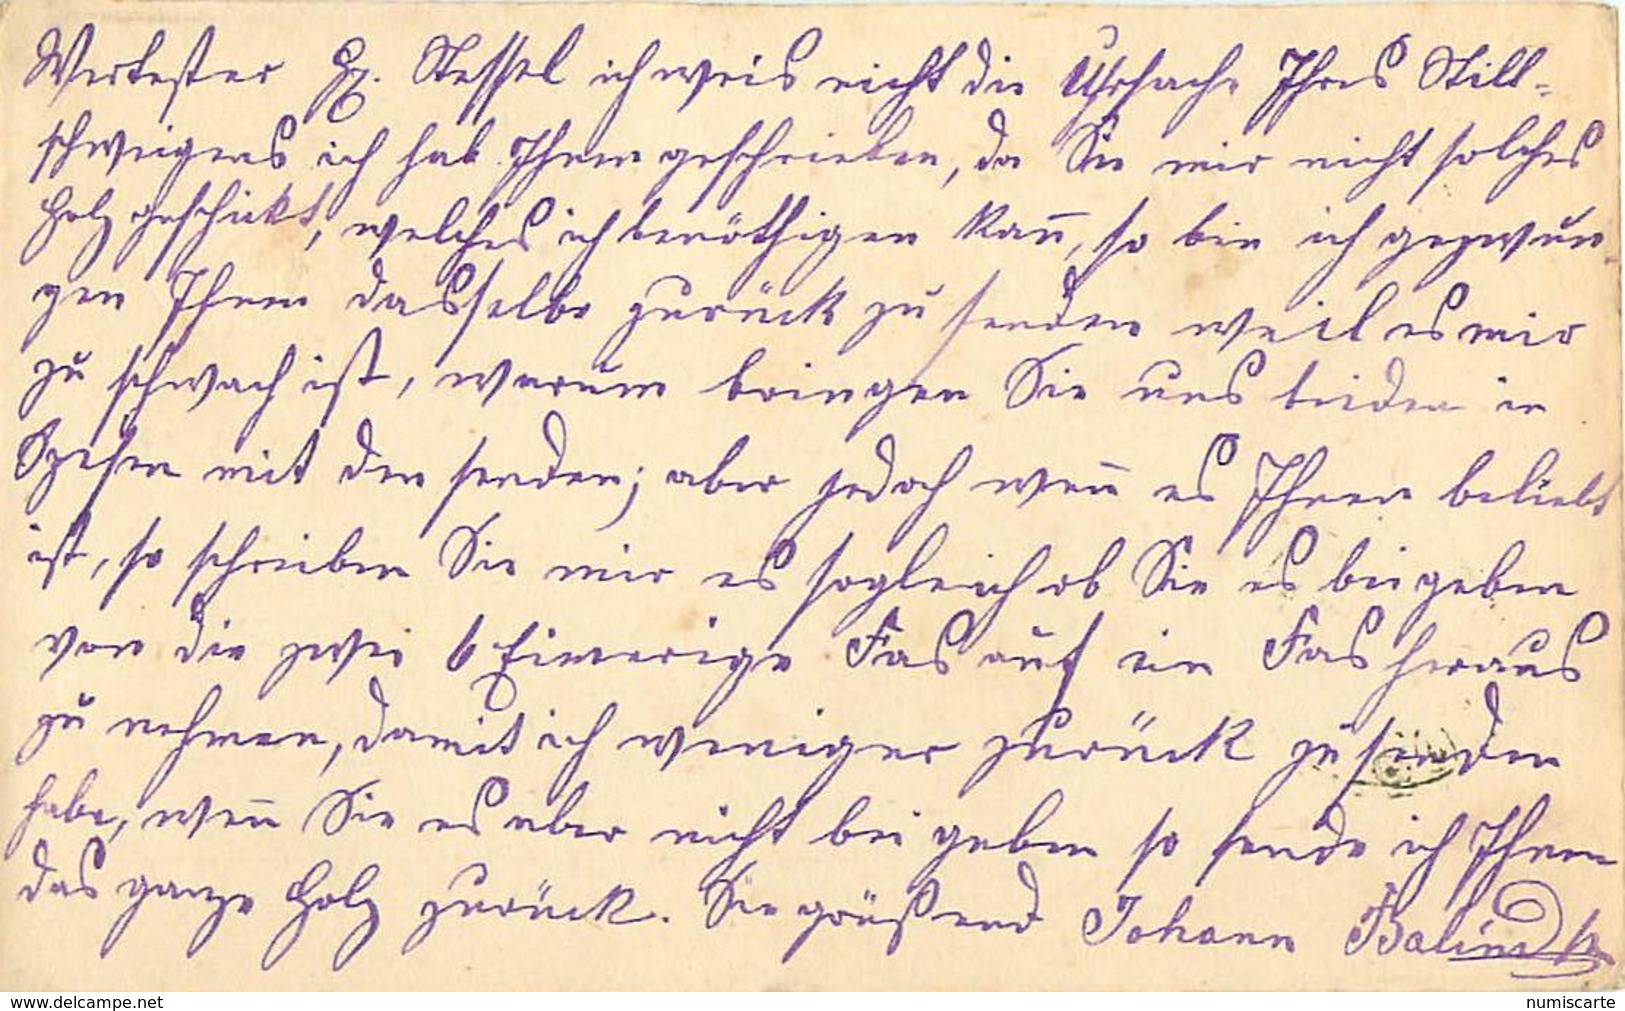 Wertester H. Stessel ich weis nicht die Uhrsache Ihres Still-
schweigens ich hab Ihnen geschrieben, da Sie mir nicht solches
Holz geschikt, welches ich benöthigen kan̄, so bin ich gezwun-
gen Ihnen dasselbe zurück zu senden weil es mir
zu schwach ist, warum bringen Sie uns beiden in
Spesen mit den senden; aber jedoch wen̄ es Ihnen beliebt
ist, so schreiben Sie mir es sogleich ob Sie es beigeben
von die zwei 6 Eimerige Fas auf ein Fas heraus
zu nehmen, damit ich weniger zurück zu senden
habe, wen̄ Sie es aber nicht bei geben so sende ich Ihnen
das ganze Holz zurück. Sie grüßend Johann
www.delcampe.net
numiscarte